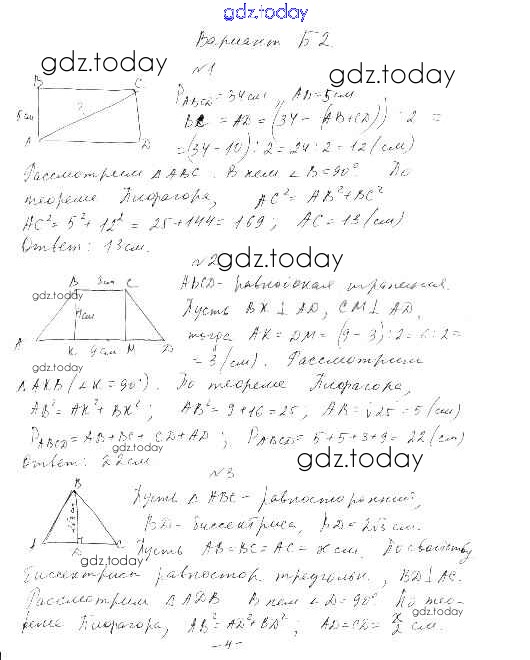 gdz.today
Вариант Б2.
gdz.today
gdz.today
№1
B
C
5см
?
A
D
P ABCD = 34 см, AB = 5 см
BC = AD = (34 - (AB+CD)) : 2 =
= (34 - 10) : 2 = 24 : 2 = 12 (см)
Рассмотрим △ABC. В нем ∠B = 90°. По
теореме Пифагора, AC² = AB² + BC²
AC² = 5² + 12² = 25 + 144 = 169; AC = 13 (см)
Ответ: 13 см.
№2
gdz.today
B
3см
C
gdz.today
4см
A
K
9см
M
D
ABCD - равнобокая трапеция.
Пусть BK ⊥ AD, CM ⊥ AD,
тогда AK = DM = (9 - 3) : 2 = 6 : 2 =
= 3 (см). Рассмотрим
gdz.today
△AKB (∠K = 90°). По теореме Пифагора,
AB² = AK² + BK²; AB² = 9 + 16 = 25, AB = √25 = 5 (см)
P ABCD = AB + BC + CD + AD; P ABCD = 5 + 5 + 3 + 9 = 22 (см)
gdz.today
Ответ: 22 см
gdz.today
№3
B
D
C
Пусть △ABC - равносторонний,
BD - биссектриса, BD = 2√3 см.
Пусть AB = BC = AC = x см. По свойству
gdz.today
биссектрисы равностор. треугольн., BD ⊥ AC.
Рассмотрим △ADB В нем ∠D = 90° По тео-
gdz.today
реме Пифагора, AB² = AD² + BD²; AD = CD = x/2 см.
-4-